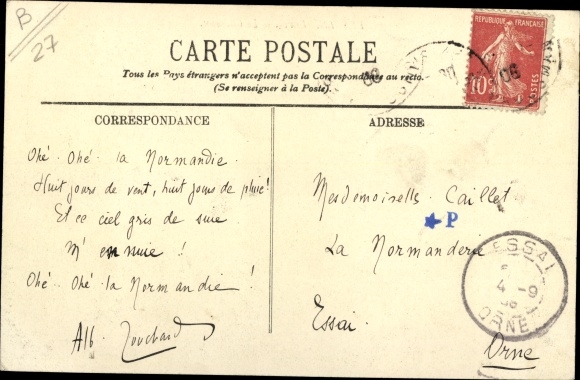 B
27
CARTE POSTALE
Tous les Pays étrangers n'acceptent pas la Correspondance au recto.
(Se renseigner à la Poste).
REPUBLIQUE FRANÇAISE
10
POSTES
CORRESPONDANCE
Ohé. Ohé. la Normandie.
Huit jours de vent, huit jours de pluie!
Et ce ciel gris de suie
M'ennuie!
Ohé. Ohé. la Normandie!
Alb. Touchard
ADRESSE
Mesdemoiselles Caillet
P
La Normanderie
Essai.
Orne
ESSAI
4 - 9
06
ORNE